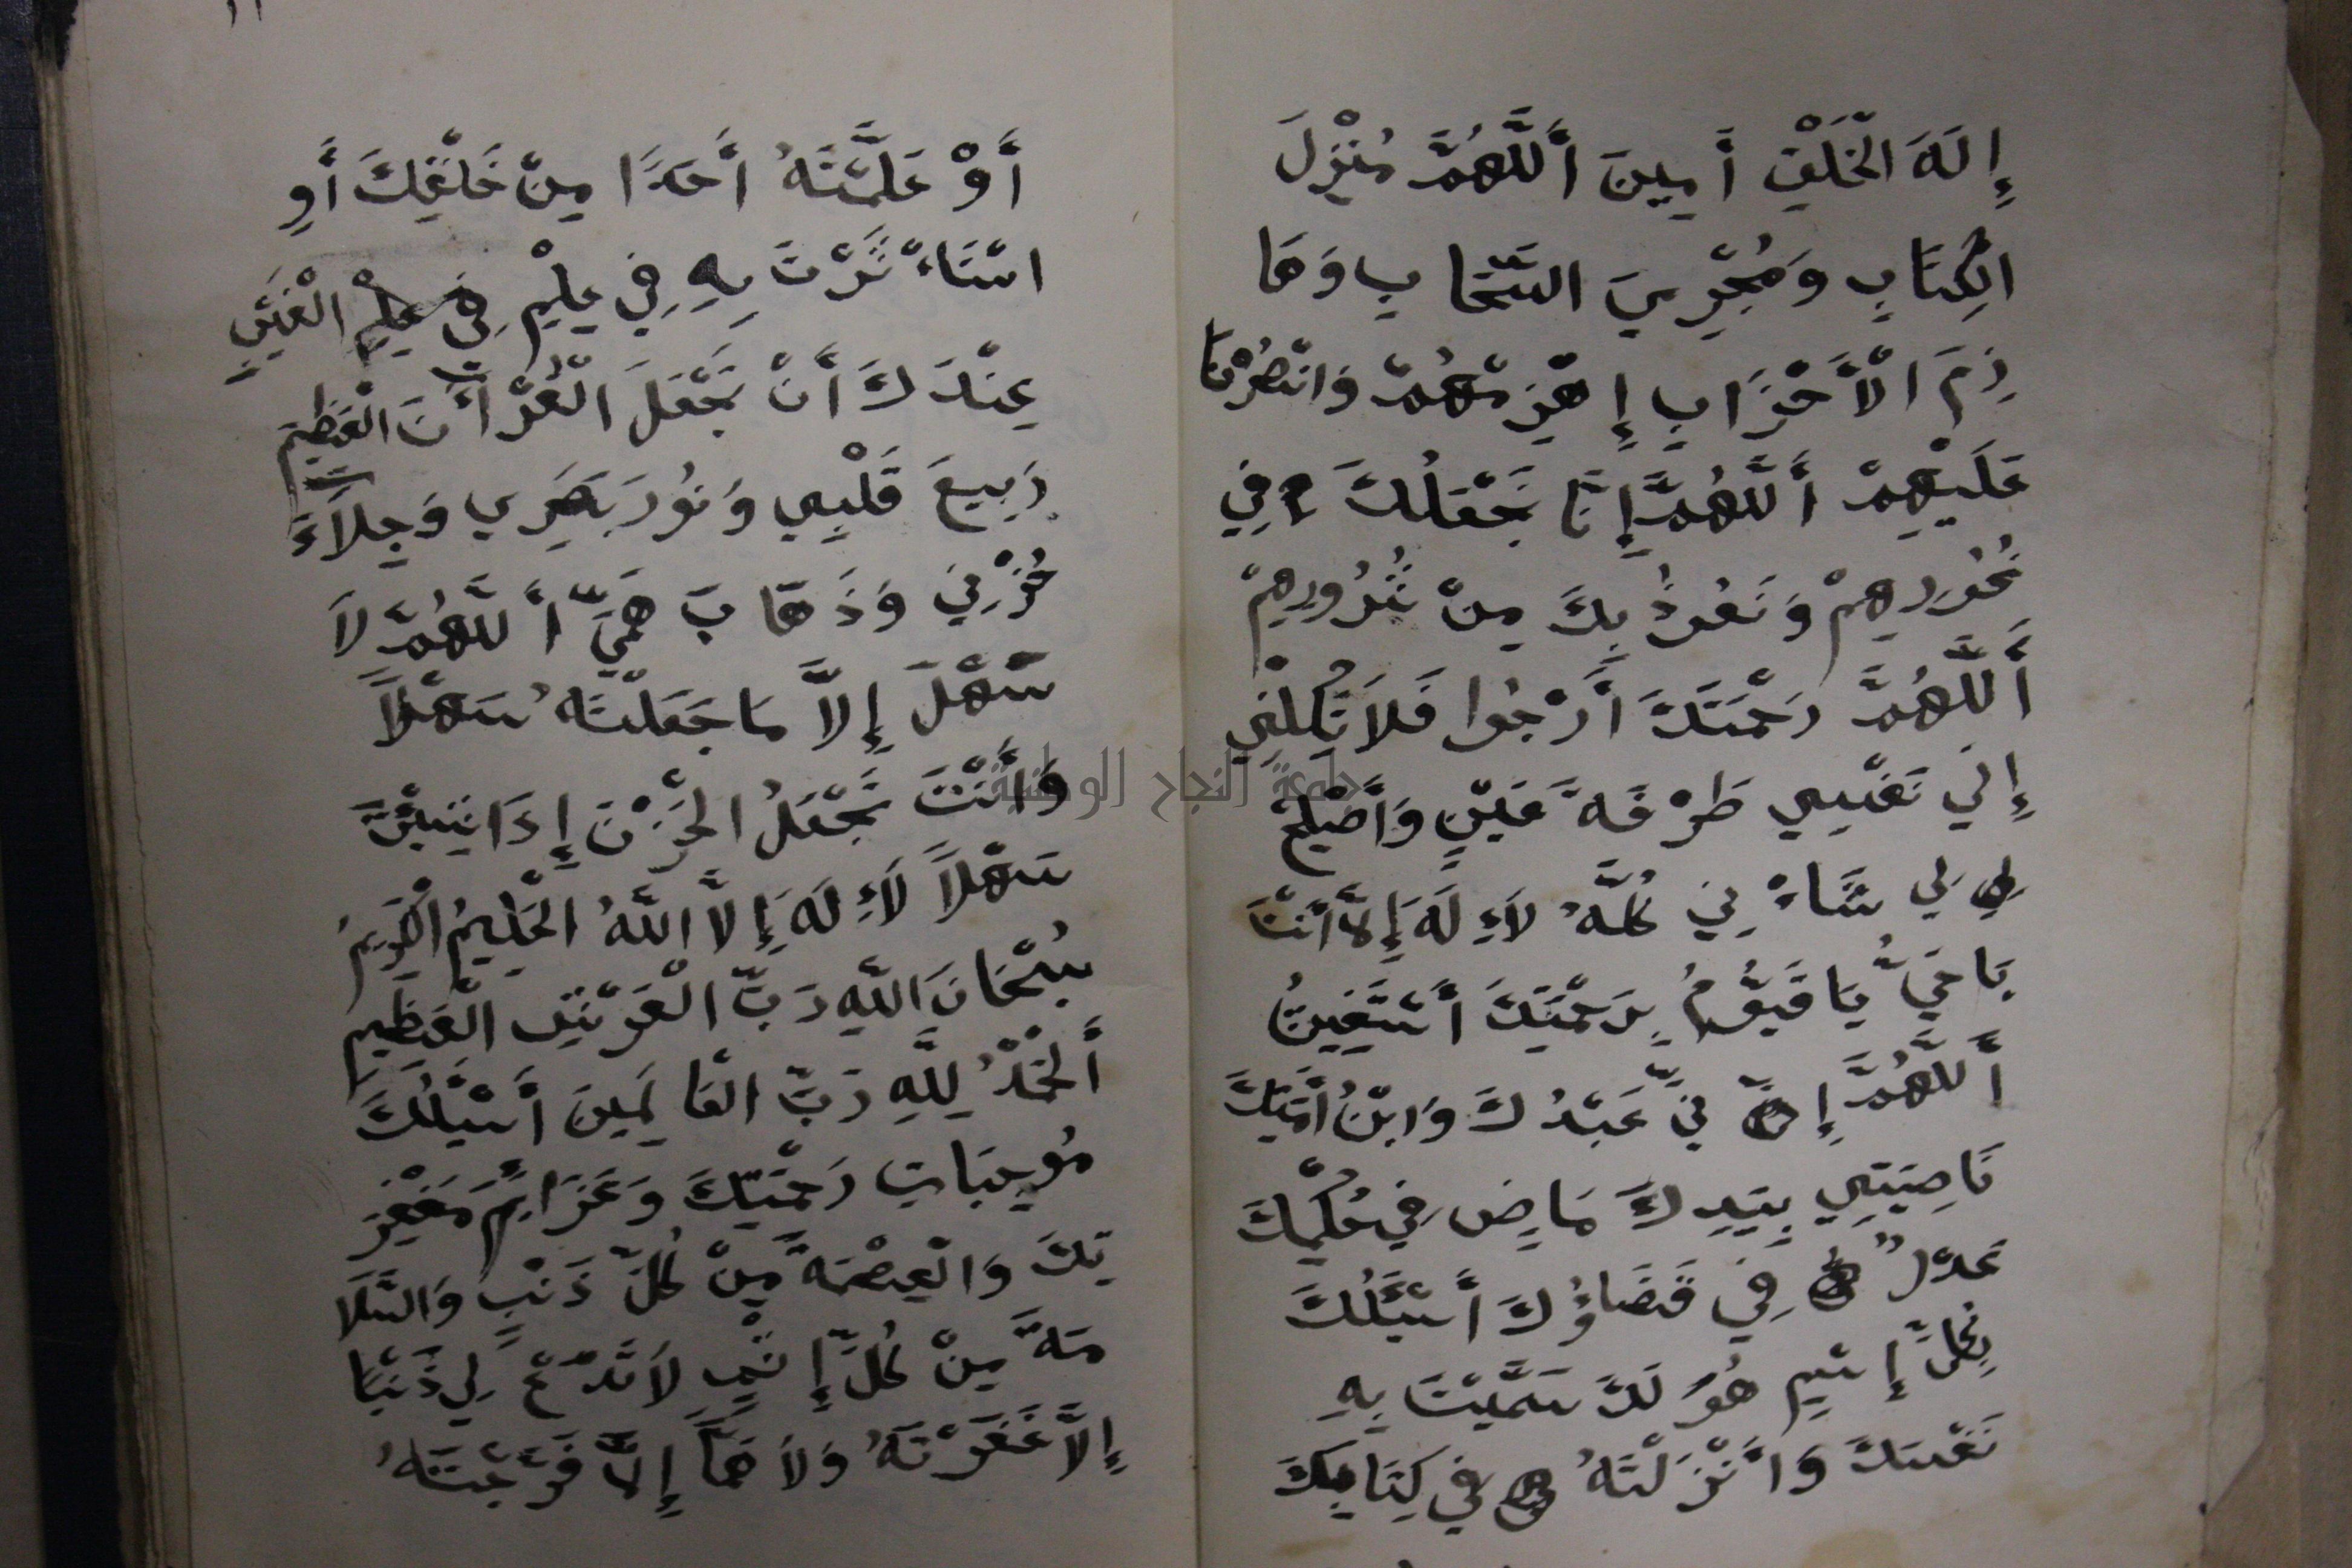 إِلَهَ الْخَلْقِ أَمِينَ أَللَّهُمَّ مُنْزِلَ
الْكِتَابِ وَمُجْرِيَ السَّحَابِ وَهَا
زِمَ الْأَحْزَابِ إِهْزِمْهُمْ وَانْصُرْنَا
عَلَيْهِمْ أَللَّهُمَّ إِنَّا نَجْعَلُكَ فِي
نُحُورِهِمْ وَنَعُوذُ بِكَ مِنْ شُرُورِهِمْ
أَللَّهُمَّ رَحْمَتَكَ أَرْجُوا فَلاَ تَكِلْنِي
إِلَي نَفْسِي طَرْفَةَ عَيْنٍ وَأَصْلِحْ
لِي شَاْنِي كُلَّهُ لاَإِلَهَ إِلاَّ أَنْتَ
يَا حَيُّ يَا قَيُّومُ بِرَحْمَتِكَ أَسْتَغِيثُ
أَللَّهُمَّ إِنِّي عَبْدُكَ وَابْنُ أَمَتِكَ
نَاصِيَتِي بِيَدِكَ مَاضٍ فِي حُكْمِكَ
عَدْلٌ فِي قَضَاؤُكَ أَسْئَلُكَ
بِكُلِّ إِسْمٍ هُوَ لَكَ سَمَّيْتَ بِهِ
نَفْسَكَ وَأَنْزَلْتَهُ فِي كِتَابِكَ
أَوْ عَلَّمْتَهُ أَحَدًا مِنْ خَلْقِكَ أَوِ
اسْتَاْثَرْتَ بِهِ فِي عِلْمِ الْغَيْبِ
عِنْدَكَ أَنْ تَجْعَلَ الْقُرْأَنَ الْعَظِيمَ
رَبِيعَ قَلْبِي وَنُورَ بَصَرِي وَجِلاَءَ
حُزْنِي وَذَهَابَ هَمِّي أَللَّهُمَّ لاَ
سَهْلَ إِلاَّ مَا جَعَلْتَهُ سَهْلاً
وَأَنْتَ تَجْعَلُ الْحَزْنَ إِذَا شِئْتَ
سَهْلاً لاَإِلَهَ إِلاَّ اللَّهُ الْحَلِيمُ الْكَرِيمُ
سُبْحَانَ اللَّهِ رَبِّ الْعَرْشِ الْعَظِيمِ
أَلْحَمْدُ لِلَّهِ رَبِّ الْعَالَمِينَ أَسْئَلُكَ
مُوجِبَاتِ رَحْمَتِكَ وَعَزَائِمَ مَغْفِرَ
تِكَ وَالْعِصْمَةَ مِنْ كُلِّ ذَنْبٍ وَالسَّلاَ
مَةَ مِنْ كُلِّ إِثْمٍ لاَ تَدَعْ لِي ذَنْبًا
إِلاَّ غَفَرْتَهُ وَلاَ هَمًّا إِلاَّ فَرَّجْتَهُ
جامعة النجاح الوطنية